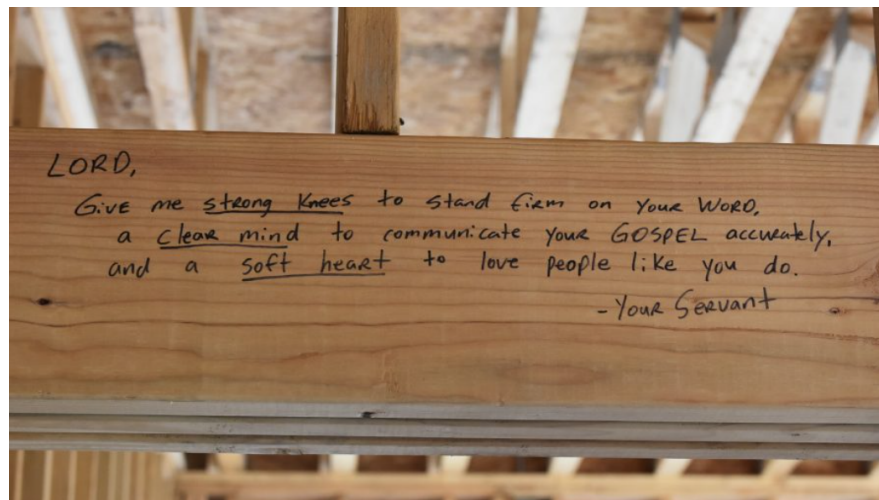 LORD,
Give me strong knees to stand firm on your WORD,
a clear mind to communicate your GOSPEL accurately,
and a soft heart to love people like you do.
- Your Servant